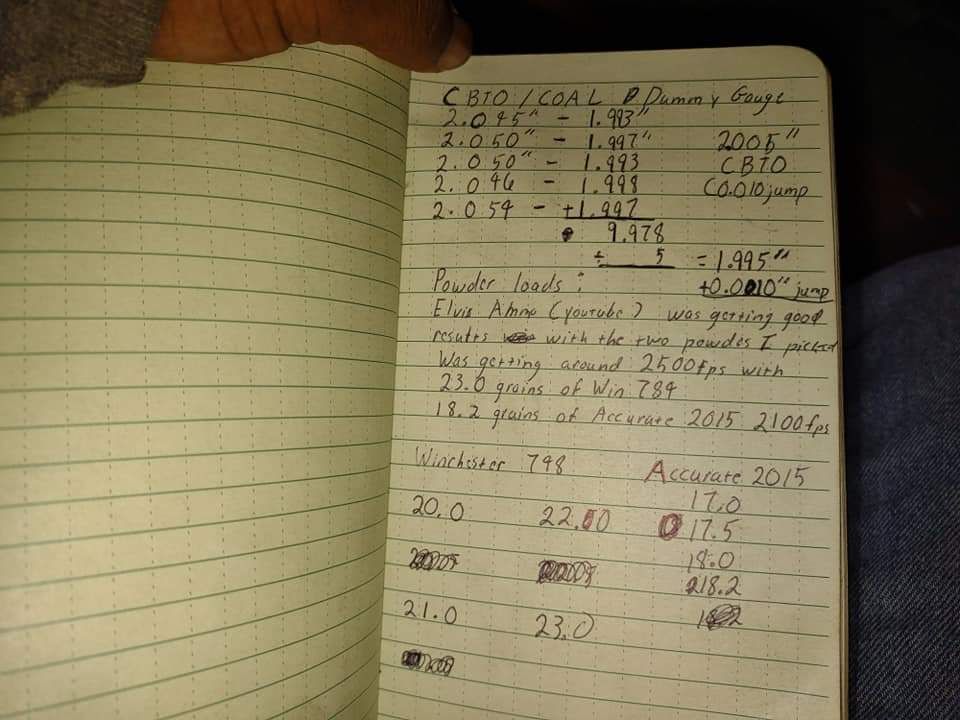 CBTO / COAL Dummy Gauge
2.045" - 1.993"
2.050" - 1.997" 2.005"
2.050" - 1.993 CBTO
2.046 - 1.998 C0.010 jump
2.054 - +1.997
9.978
÷ 5 = 1.995"
Powder loads: +0.010" jump
Elvis Ammo (youtube) was getting good
results with the two powdes I picked
Was getting around 2500fps with
23.0 grains of Win 784
18.2 grains of Accurate 2015 2100fps
Winchester 748 Accurate 2015
17.0
20.0 22.0 17.5
18.0
18.2
21.0 23.0